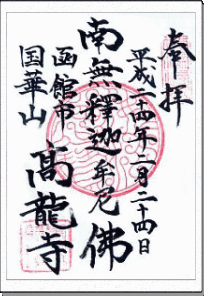 奉拝
平成二十四年二月二十四日
南無釋迦牟尼佛
函館市
国華山
高龍寺